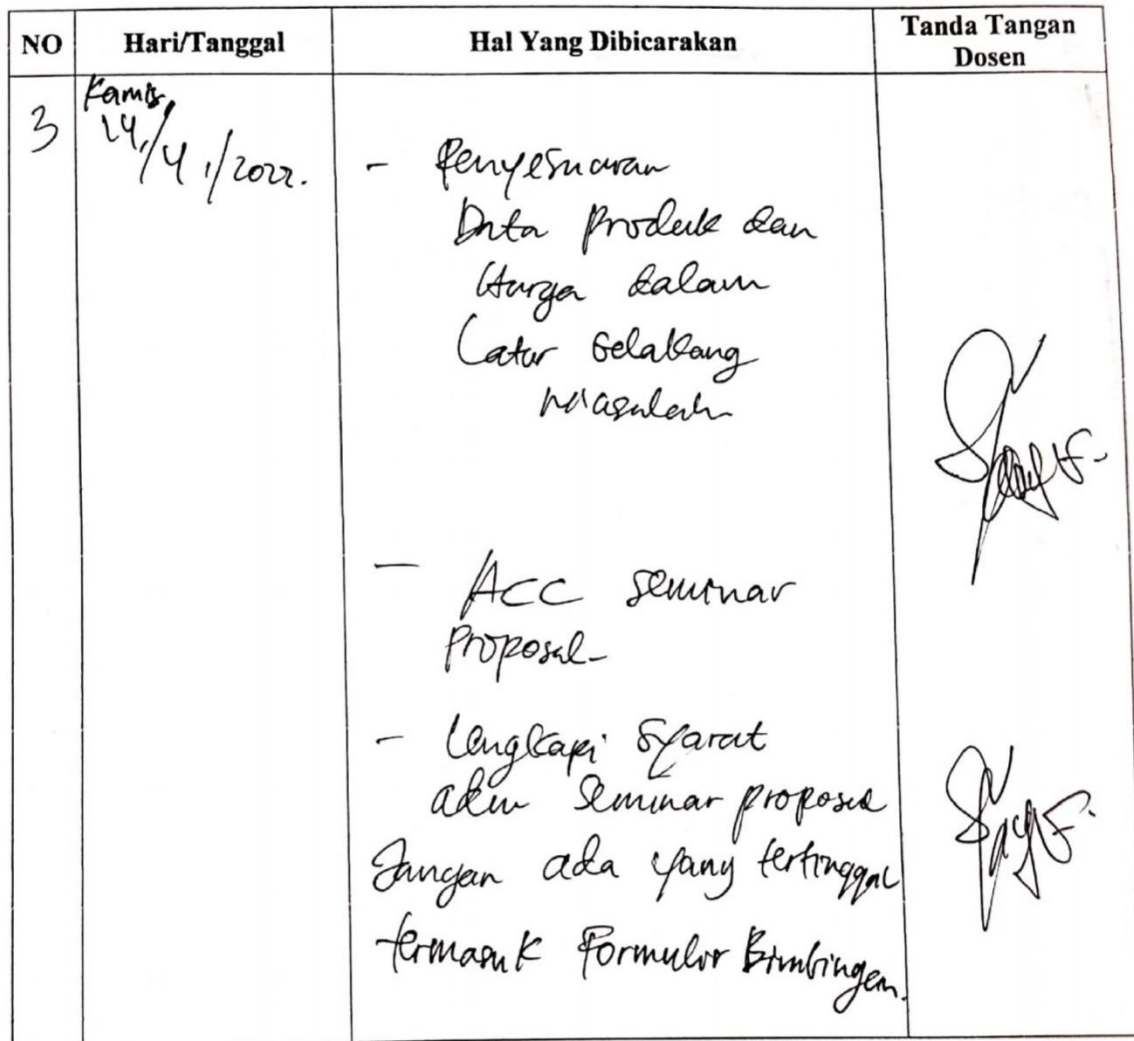 NO Hari/Tanggal Hal Yang Dibicarakan Tanda Tangan
Dosen
3 Kamis,
14/4/2022.
- Penyesuaian
Data Produk dan
Harga dalam
Latar Belakang
Masalah
- ACC Seminar
Proposal-
- Lengkapi Syarat
adm Seminar proposal
Jangan ada yang tertinggal
termasuk Formulir Bimbingan.